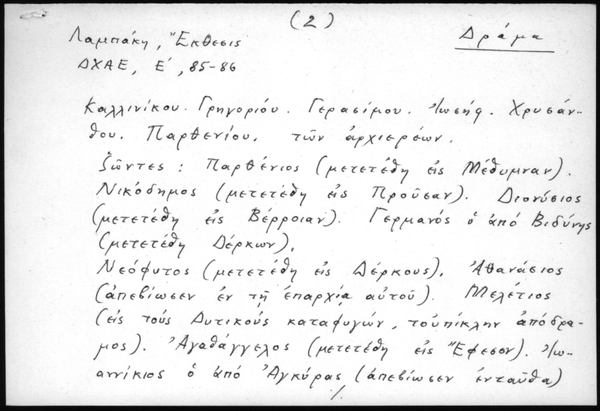 (2)
Λαμπάκη, Ἔκθεσις
Δράμα
ΔΧΑΕ, Ε΄, 85-86
Καλλινίκου. Γρηγορίου. Γερασίμου. Ἰωσήφ. Χρυσάν-
θου. Παρθενίου. τῶν ἀρχιερέων.
ζῶντες: Παρθένιος (μετετέθη εἰς Μέθυμναν).
Νικόδημος (μετετέθη εἰς Προῦσαν). Διονύσιος
(μετετέθη εἰς Βέρροιαν). Γερμανός ὁ ἀπό Βιδύνης
(μετετέθη Δέρκων).
Νεόφυτος (μετετέθη εἰς Δέρκους). Ἀθανάσιος
(ἀπεβίωσεν ἐν τῇ ἐπαρχίᾳ αὐτοῦ). Μελέτιος
(εἰς τοὺς Δυτικούς καταφυγών, τοὐπίκλην ἀπόδρα-
μος). Ἀγαθάγγελος (μετετέθη εἰς Ἔφεσον). Ἰω-
αννίκιος ὁ ἀπό Ἀγκύρας (ἀπεβίωσεν ἐνταῦθα)
./.